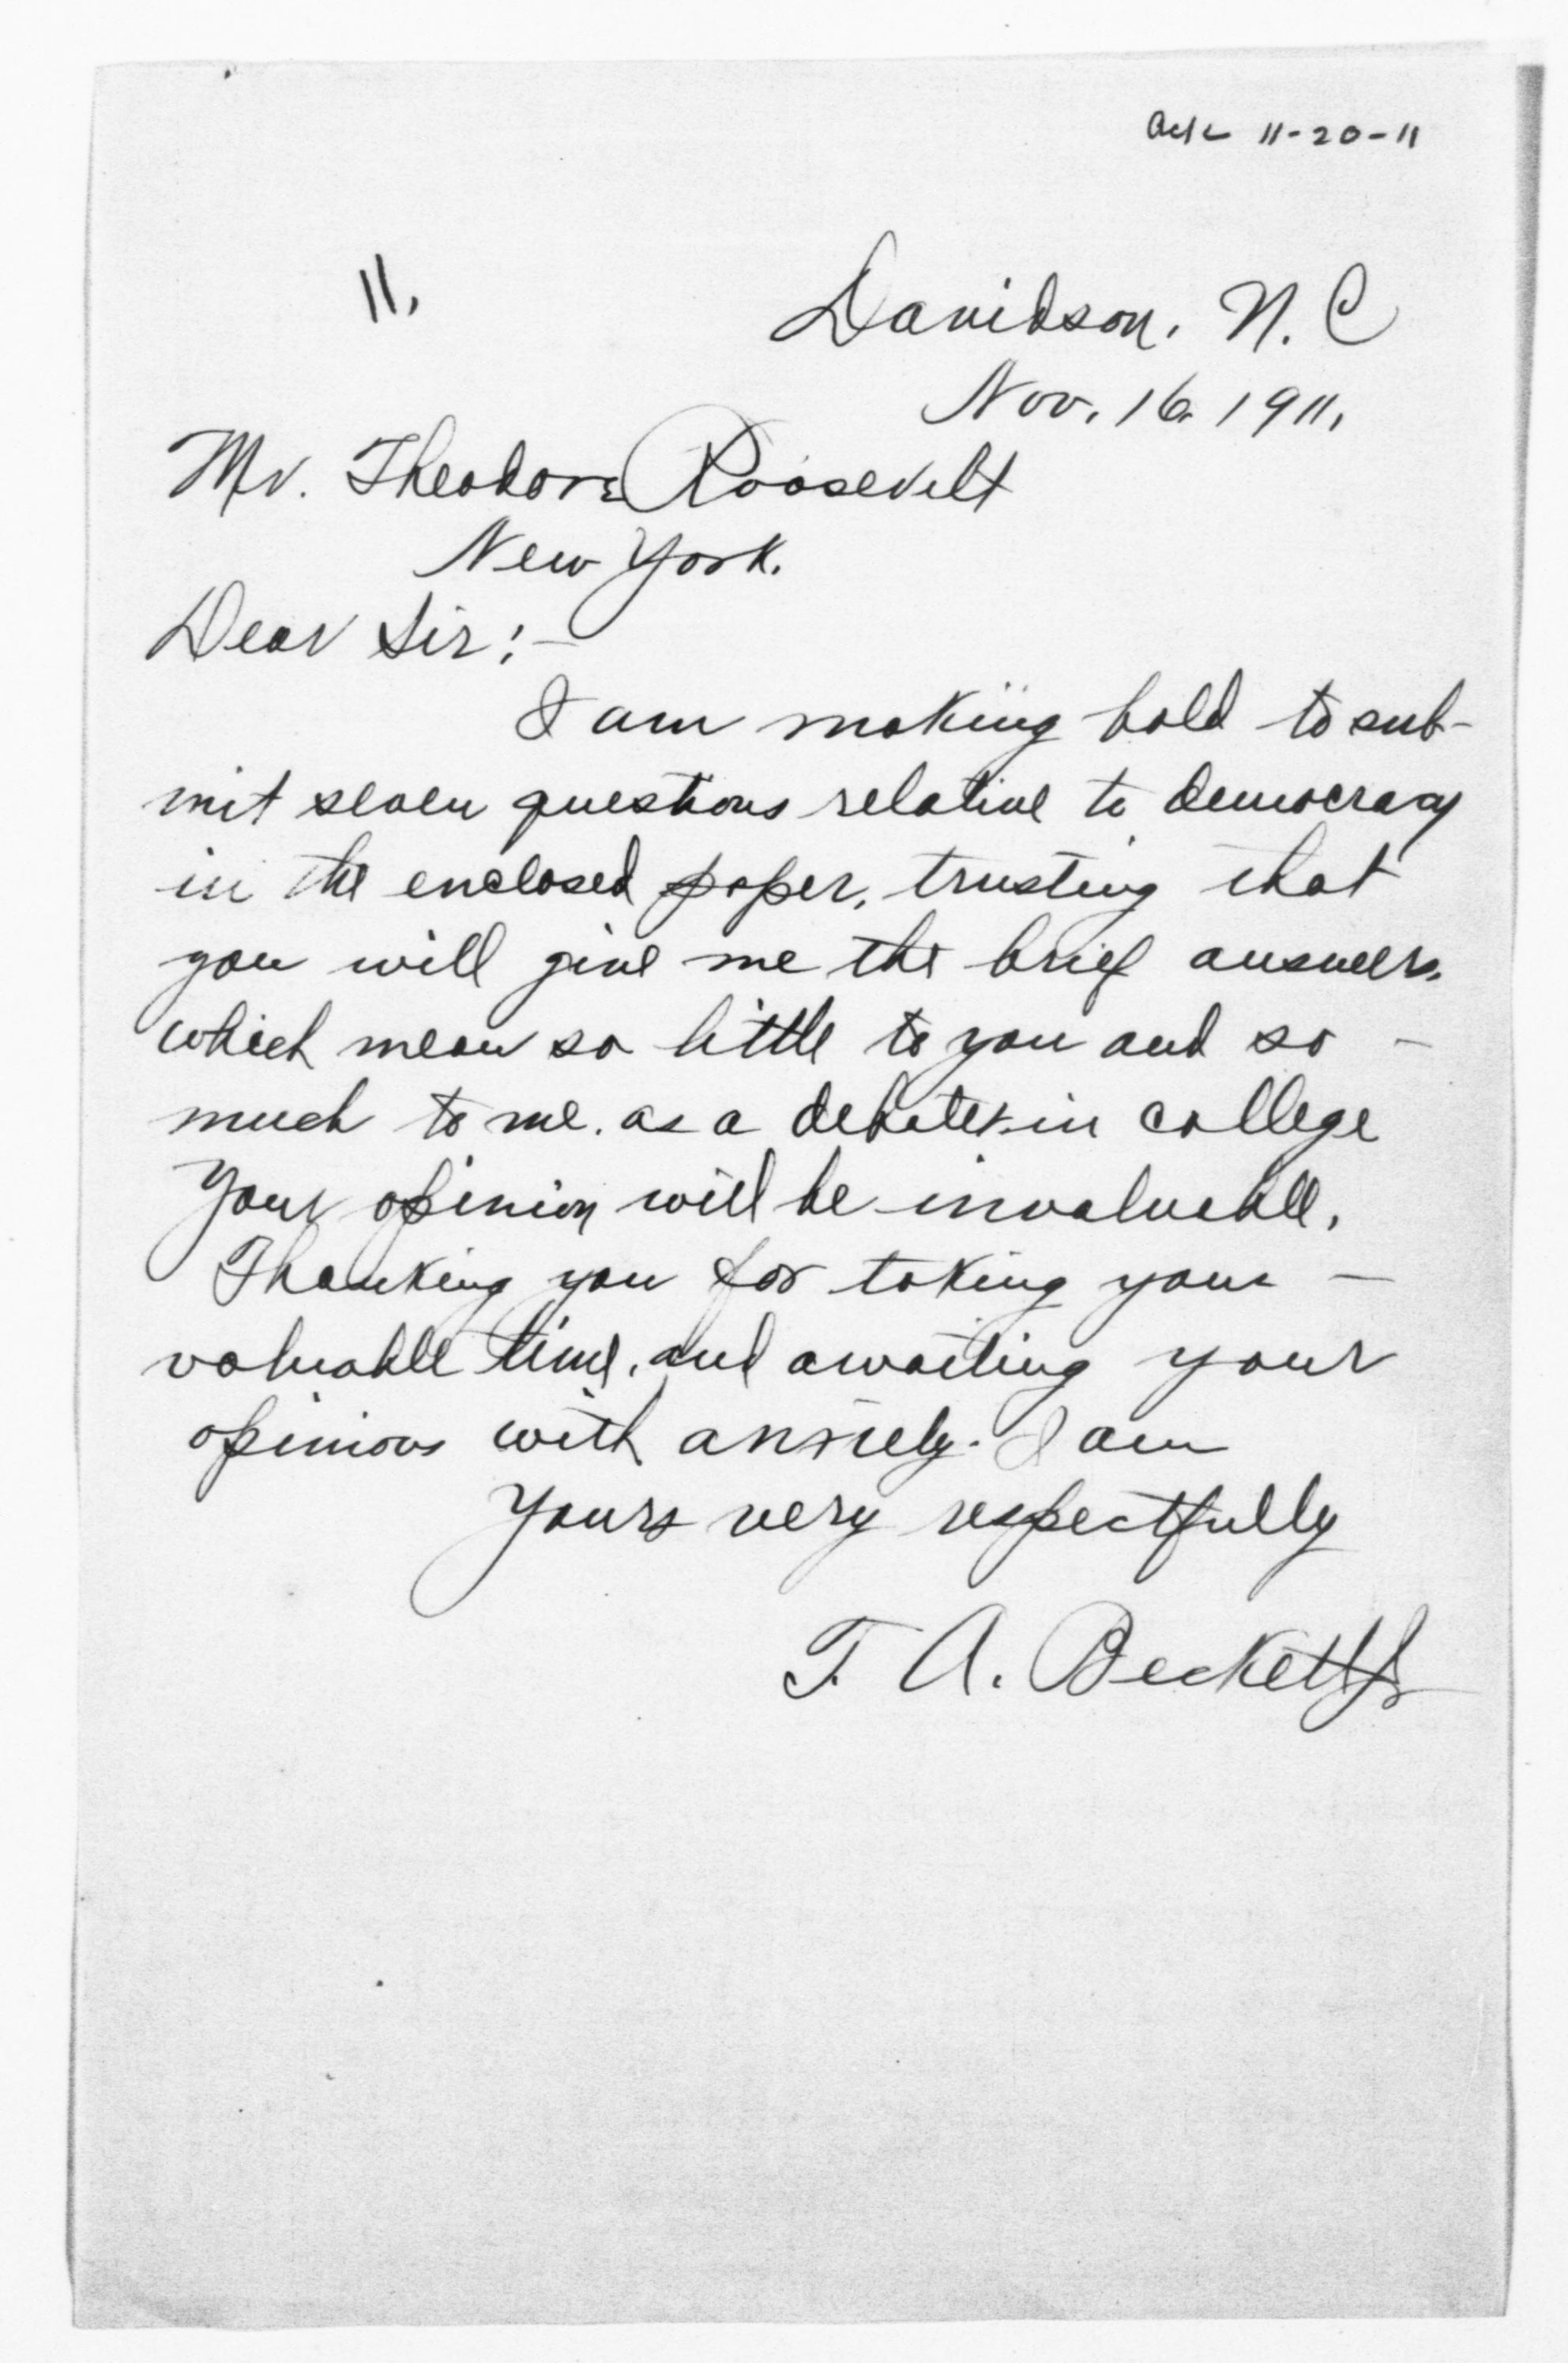 Ack 11-20-11
11.
Davidson, N. C
Nov. 16. 1911.
Mr. Theodore Roosevelt
New York.
Dear Sir:-
I am making bold to sub-
mit seven questions relative to democracy
in the enclosed paper, trusting that
you will give me the brief answers,
which mean so little to you and so -
much to me. as a debater in college
your opinion will be invaluable.
Thanking you for taking your -
valuable time, and awaiting your
opinions with anxiety. I am
Yours very respectfully
T. A. Beckett Jr